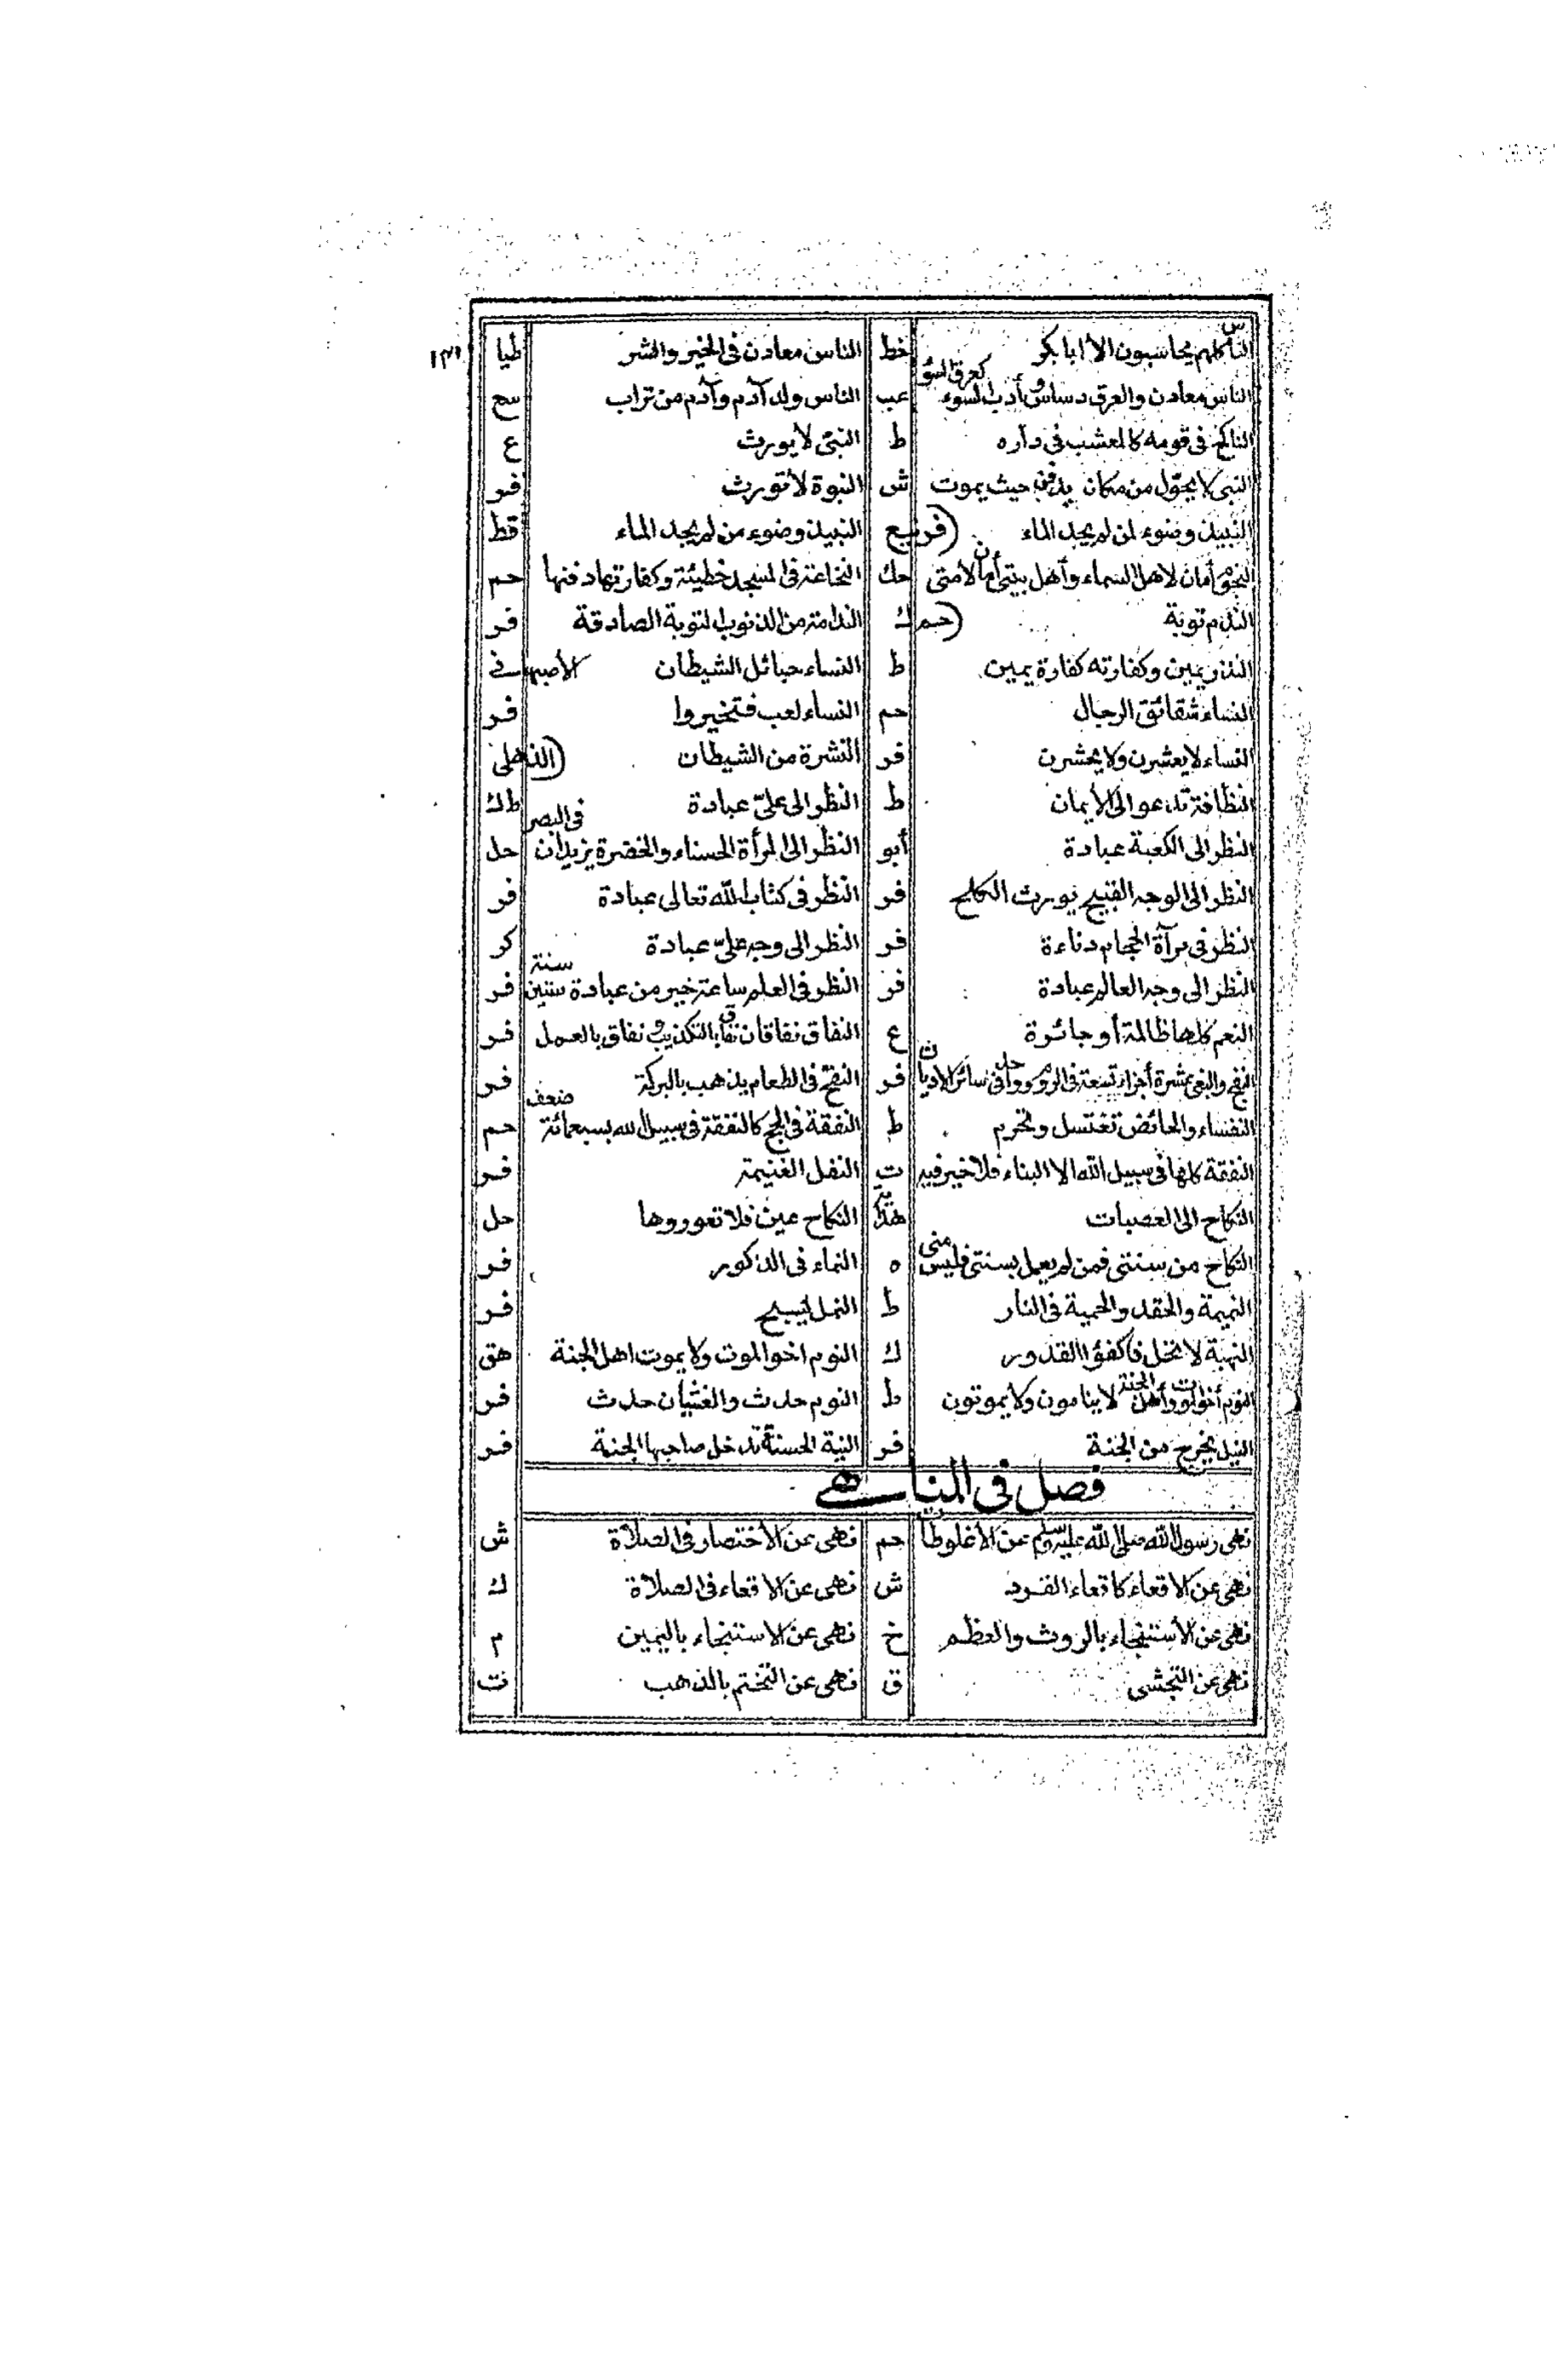 الناس كلهم يحاسبون الا أبا بكر خط الناس معادن في الخير والشر طيا
الناس معادن والعرق دساس وأدب السوء كعرق السوء عب الناس ولد آدم وآدم من تراب سع
الناكح في قومه كالمعشب في داره ط النبي لا يورث ع
النبي لا يحوّل من مكان يدفن حيث يموت ش النبوة لا تورث فر
النبيذ وضوء لمن لم يجد الماء النبيذ وضوء من لم يجد الماء قط
النجوم أمان لاهل السماء وأهل بيتي أمان لامتى حك النخاعة في المسجد خطيئة وكفارتها دفنها حم
الندم توبة (حم ك الندامة من الذنوب التوبة الصادقة فر
النذر يمين وكفارته كفارة يمين ط النساء حبائل الشيطان الأصبهانى
النساء شقائق الرجال حم النساء لعب فتخيروا فر
النساء لا يعشرن ولا يحشرن فر النشرة من الشيطان (الذهلى
النظافة تدعو الى الأيمان ط النظر الى عليّ عبادة طك
النظر الى الكعبة عبادة أبو النظر الى المرأة الحسناء والخضرة يزيدان في البصر حل
النظر الى الوجه القبيح يورث الكلح فر النظر في كتاب الله تعالى عبادة فر
النظر في مرآة الحجام دناءة فر النظر الى وجه عليّ عبادة كر
النظر الى وجه العالم عبادة فر النظر في العلم ساعة خير من عبادة ستين سنة فر
النعم كلها ظالمة أو جائرة ع النفاق نفاقان نفاق بالتكذيب و نفاق بالعمل فر
عشرة أجزاء تسعة في الروم وواحد في سائر الاديان فر النفخ في الطعام يذهب بالبركة فر
النفساء والحائض تغتسل وتحرم ط النفقة في الحج كالنفقة في سبيل الله بسبعمائة ضعف حم
النفقة كلها في سبيل الله الا البناء فلا خير فيه ت النفل الغنيمة فر
النكاح الى العصبات النكاح عين فلا تعوروها حل
النكاح من سنتى فمن لم يعمل بسنتى فليس منى ه النماء في الذكور فر
النميمة والحقد والحمية في النار ط النمل يسبح فر
النهبة لا تحل فاكفؤا القدور ك النوم اخو الموت ولا يموت اهل الجنة هق
النوم أخو الموت وأهل الجنة لا ينامون ولا يموتون ط النوم حدث والغثيان حدث فر
النيل يخرج من الجنة فر النية الحسنة تدخل صاحبها الجنة فر
فصل في المناهى
نهى رسول الله صلى الله عليه وسلم عن الأغلوطا حم نهى عن الأختصار في الصلاة ش
نهى عن الاقعاء كاقعاء القرد ش نهى عن الاقعاء في الصلاة ك
نهى عن الأستنجاء بالروث والعظم خ نهى عن الاستنجاء باليمين م
نهى عن النجش ق نهى عن التختم بالذهب ت